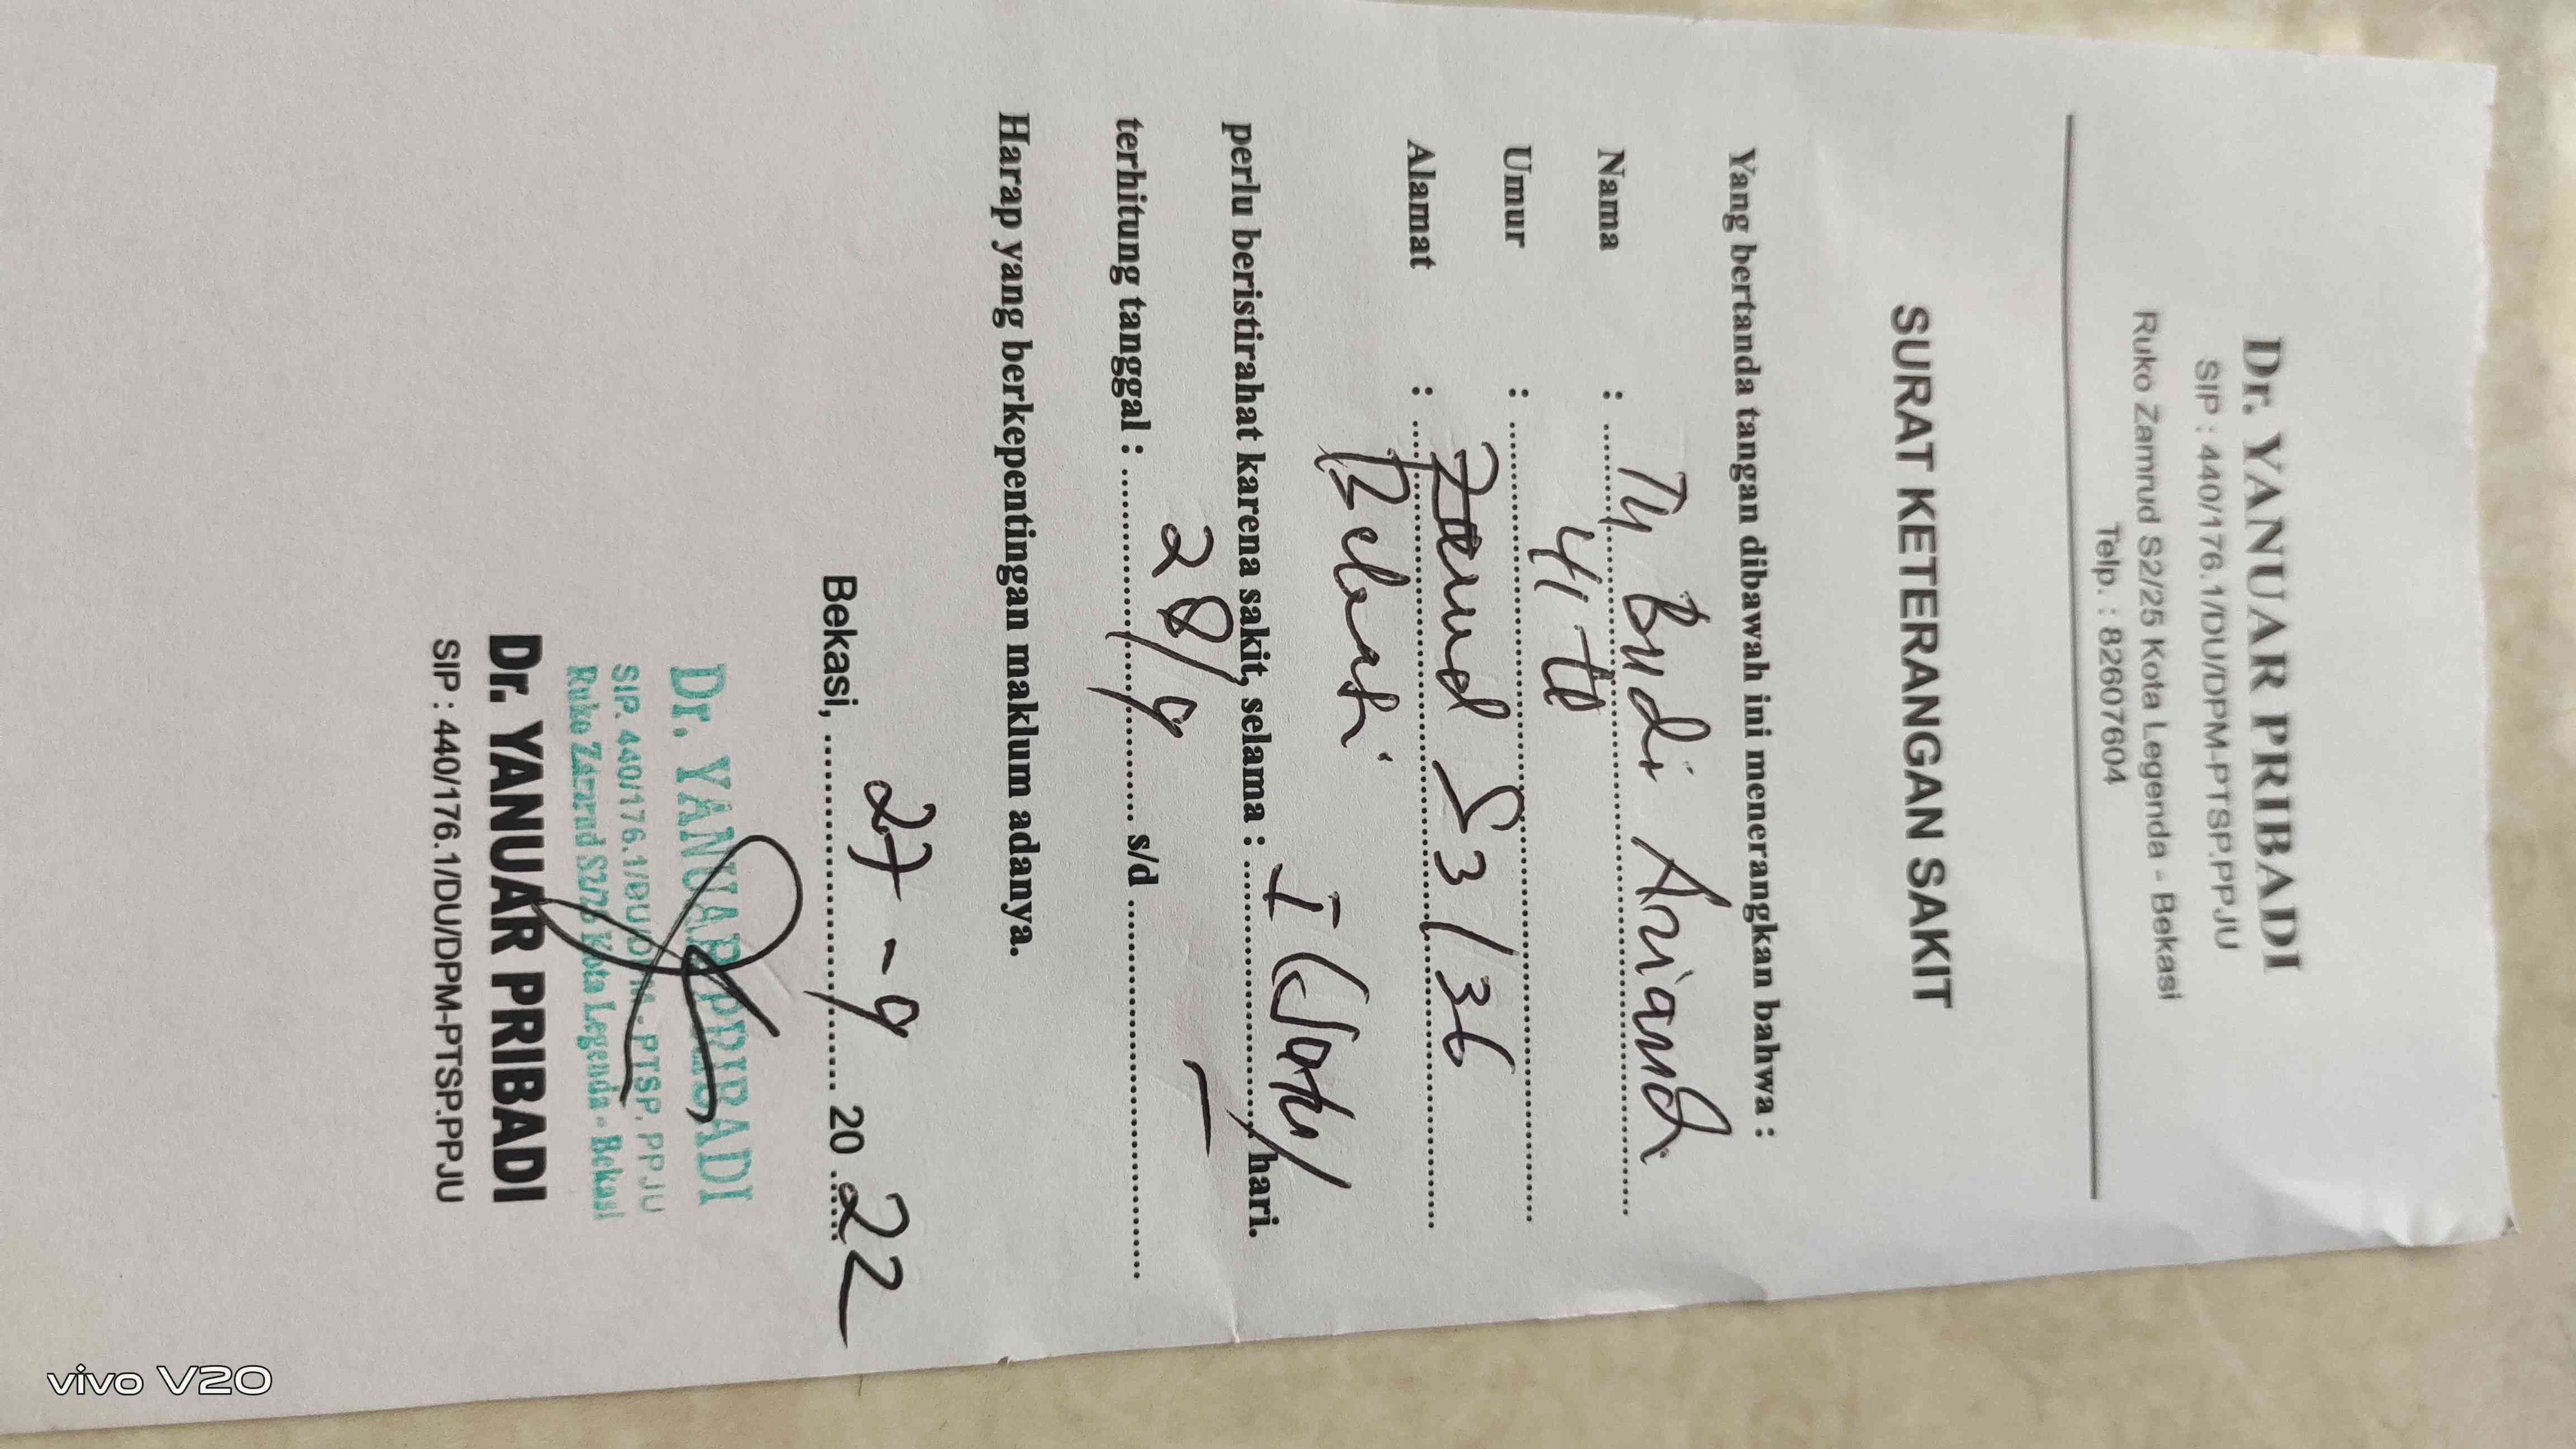 Dr. YANUAR PRIBADI
SIP : 440/176.1/DU/DPM-PTSP.PPJU
Ruko Zamrud S2/25 Kota Legenda - Bekasi
Telp. : 82607604
SURAT KETERANGAN SAKIT
Yang bertanda tangan dibawah ini menerangkan bahwa :
Nama : Budi
Umur : 41 th
Alamat : S3/36
perlu beristirahat karena sakit, selama : 1 (Satu) hari.
terhitung tanggal : 28/9 s/d —
Harap yang berkepentingan maklum adanya.
Bekasi, 27-9 20 22
Dr. YANUAR PRIBADI
SIP. 440/176.1/DU/DPM - PTSP. PPJU
Ruko Zamrud S2/25 Kota Legenda - Bekasi
Dr. YANUAR PRIBADI
SIP : 440/176.1/DU/DPM-PTSP.PPJU
vivo V20